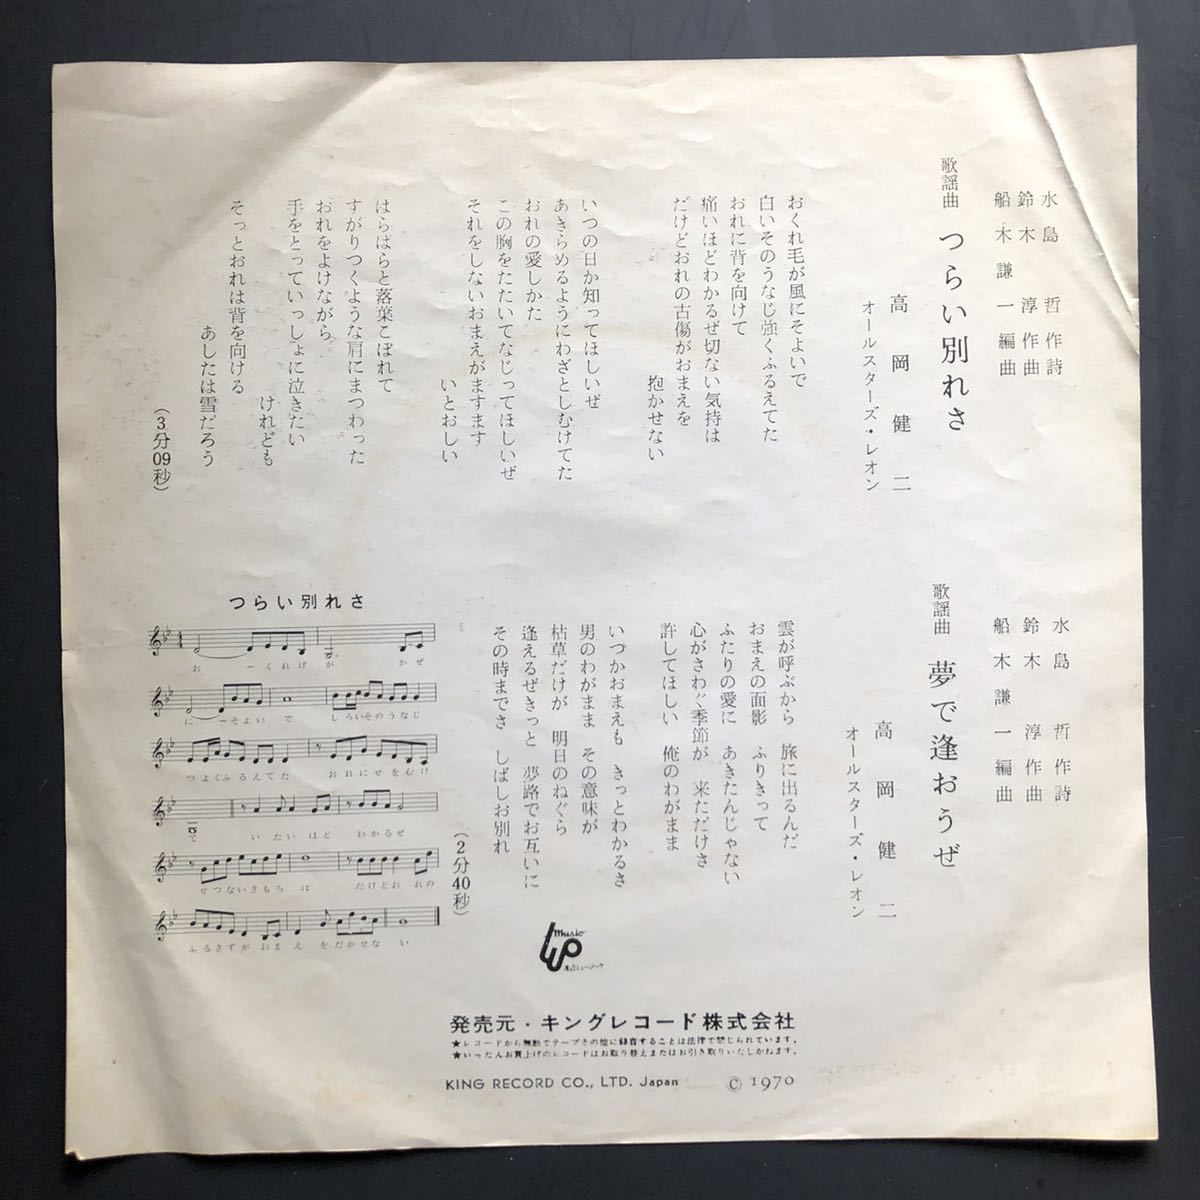 水島哲作詩
鈴木淳作曲
船木謙一編曲
歌謡曲 つらい別れさ
高岡健二
オールスターズ・レオン
おくれ毛が風にそよいで
白いそのうなじ強くふるえてた
おれに背を向けて
痛いほどわかるぜ切ない気持は
だけどおれの古傷がおまえを
抱かせない
いつの日か知ってほしいぜ
あきらめるようにわざとしむけてた
おれの愛しかた
この胸をたたいてなじってほしいぜ
それをしないおまえがますます
いとおしい
はらはらと落葉こぼれて
すがりつくような肩にまつわった
おれをよけながら
手をとっていっしょに泣きたい
けれども
そっとおれは背を向ける
あしたは雪だろう
(3分09秒)
水島哲作詩
鈴木淳作曲
船木謙一編曲
歌謡曲 夢で逢おうぜ
高岡健二
オールスターズ・レオン
雲が呼ぶから 旅に出るんだ
おまえの面影 ふりきって
ふたりの愛に あきたんじゃない
心がさわぐ季節が 来ただけさ
許してほしい 俺のわがまま
いつかおまえも きっとわかるさ
男のわがまま その意味が
枯草だけが 明日のねぐら
逢えるぜきっと 夢路でお互いに
その時までさ しばしお別れ
(2分40秒)
つらい別れさ
お ー くれげが かぜ
に ー そよいで しろいそのうなじ
つよくふるえてた おれにせをむけ
て いたいほど わかるぜ
せつないきもちは だけどおれの
ふるきずがおまえをだかせない
music
発売元・キングレコード株式会社
★レコードから無断でテープその他に録音することは法律で禁じられています。
★いったんお買上げのレコードはお取り替えまたはお引き取りいたしかねます。
KING RECORD CO., LTD. Japan © 1970